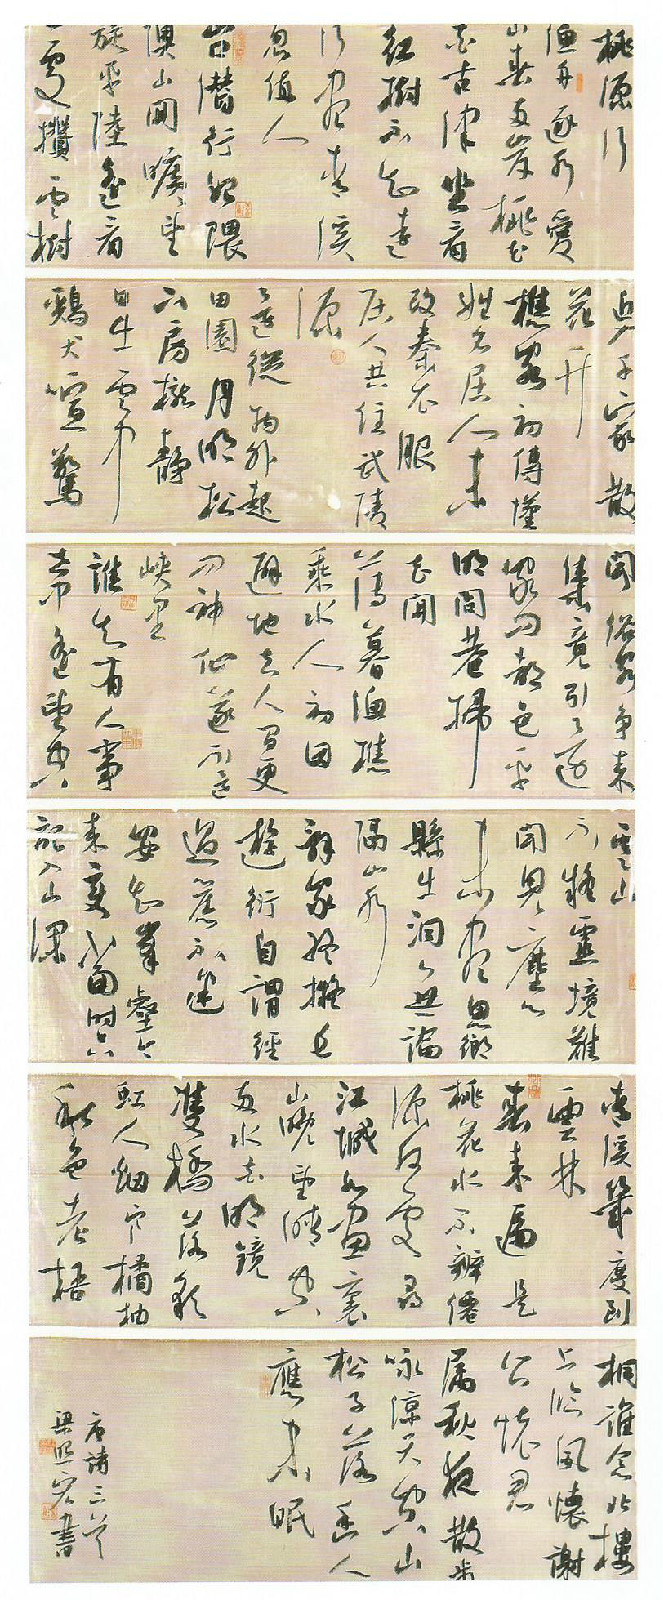 桃源行
漁舟逐水愛
山春兩岸桃花
夾古津坐看
紅樹不知遠
行盡青溪
忽值人
山口潛行始隈
隩山開曠望
旋平陸遙看
一處攢雲樹
近入千家散
花竹
樵客初傳漢
姓名居人未
改秦衣服
居人共住武陵
源
還從物外起
田園月明松
下房櫳靜
日出雲中
鷄犬喧驚
聞俗客爭來
集競引還
家問都邑平
明閭巷掃
花開
薄暮漁樵
乘水入初因
避地去人間更
問神仙遂不還
峽裏
誰知有人事
世中遙望空
雲山
不疑靈境難
聞見塵心
未盡思鄉
縣出洞無論
隔山水
辭家終擬長
遊衍自謂經
過舊不迷
安知峯壑今
來變當時只
記入山深
青溪幾度到
雲林
春來遍是
桃花水不辨僊
源何處尋
江城如畫裏
山曉望晴空
兩水夾明鏡
雙橋落彩
虹人烟寒橘柚
秋色老梧
桐誰念北樓
上臨風懷謝
公懷君
屬秋夜散步
詠涼天空山
松子落幽人
應未眠
唐詩三首
梁書